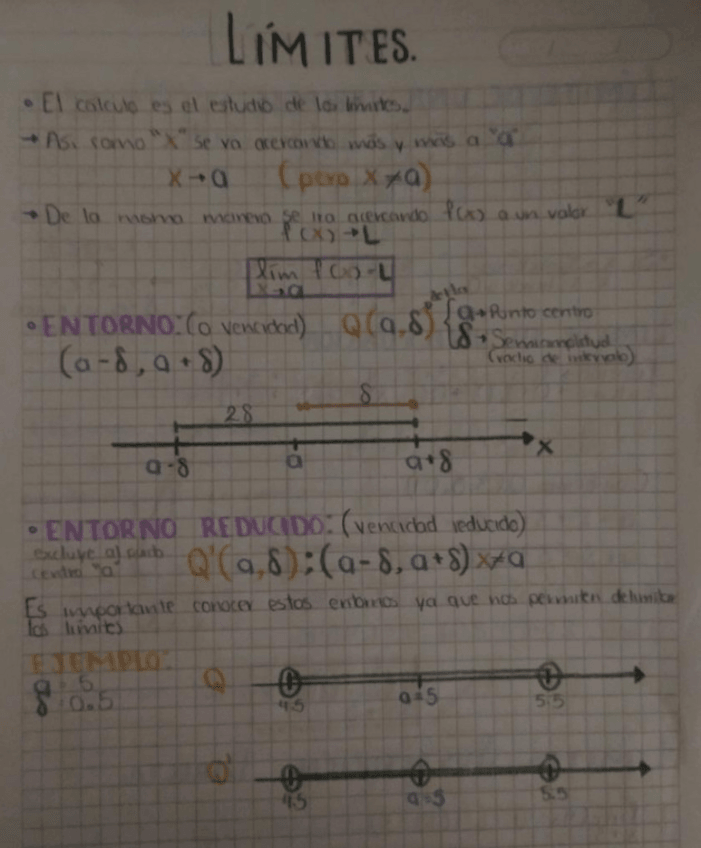 LÍMITES.
• El calculo es el estudio de los límites.
→ Asi como "X" se va acercando más y más a "a"
X→a (pero X≠a)
→ De la misma manera se ira acercando f(x) a un valor "L"
f(x)→L
lím f(x)=L
x→a
• ENTORNO: (o vencidad) Q(a,δ) { a→Punto centro
δ→Semiamplitud
(radio de intervalo)
(a-δ, a+δ)
δ
2δ
a-δ a a+δ X
• ENTORNO REDUCIDO: (vencidad reducido)
excluye al punto
centro "a" Q'(a,δ):(a-δ, a+δ) x≠a
Es importante conocer estos entornos ya que nos permiten delimitar
los límites
EJEMPLO:
a=5
δ=0.5
Q
4.5 a=5 5.5
Q'
4.5 a=5 5.5